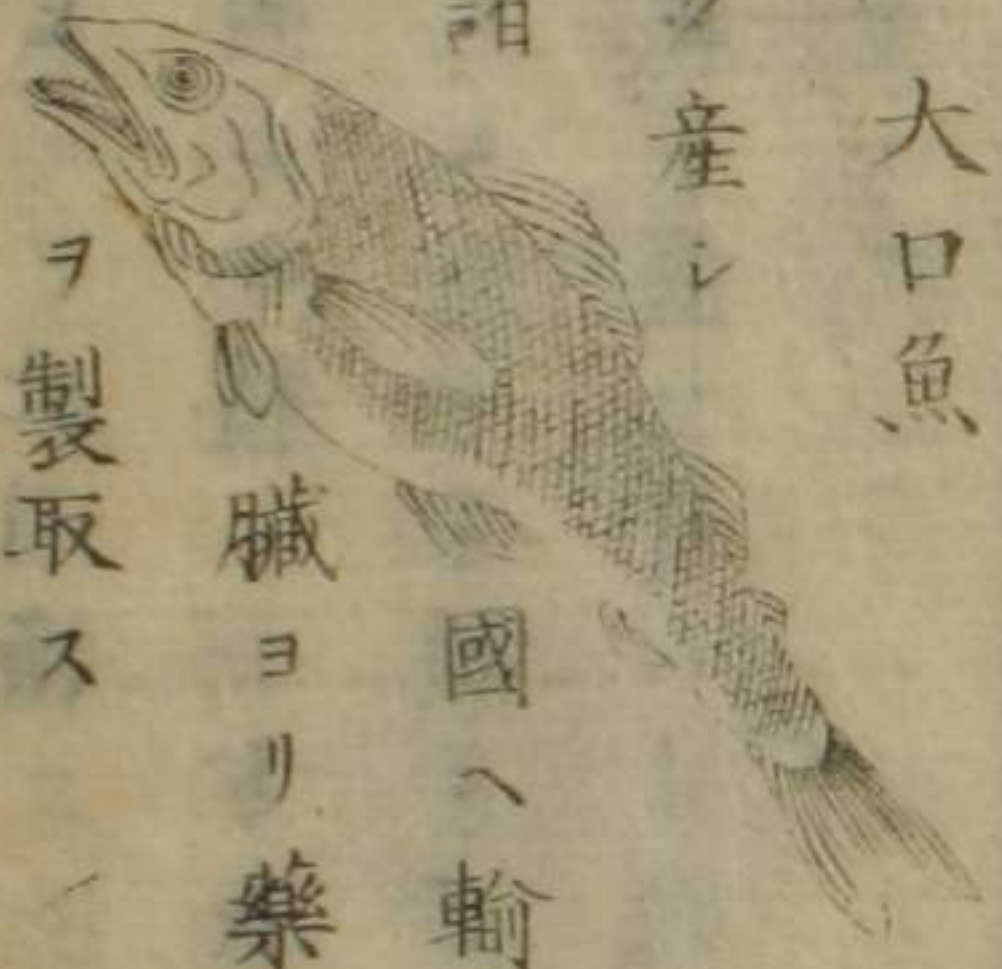 大口魚
産シ
國ヘ輸
臓ヨリ藥
ヲ製取ス